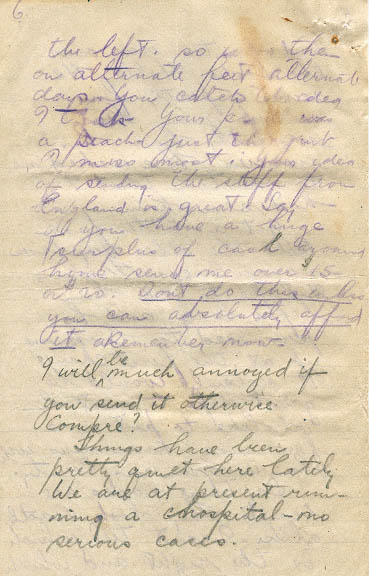 6.
the left. so then
on alternate feet alternate
days. You catch the idea
Your was
a peach just the
I miss most. Your idea
of sending the stuff from
England is great. So
if you have a huge
surplus of cash around
home send me over 15
or 20. Dont do this unless
you can absolutely afford
it Remember now.
I will be much annoyed if
you send it otherwise
Compre?
Things have been
pretty quiet here lately
We are at present run-
ning a chospital-no
serious cases.